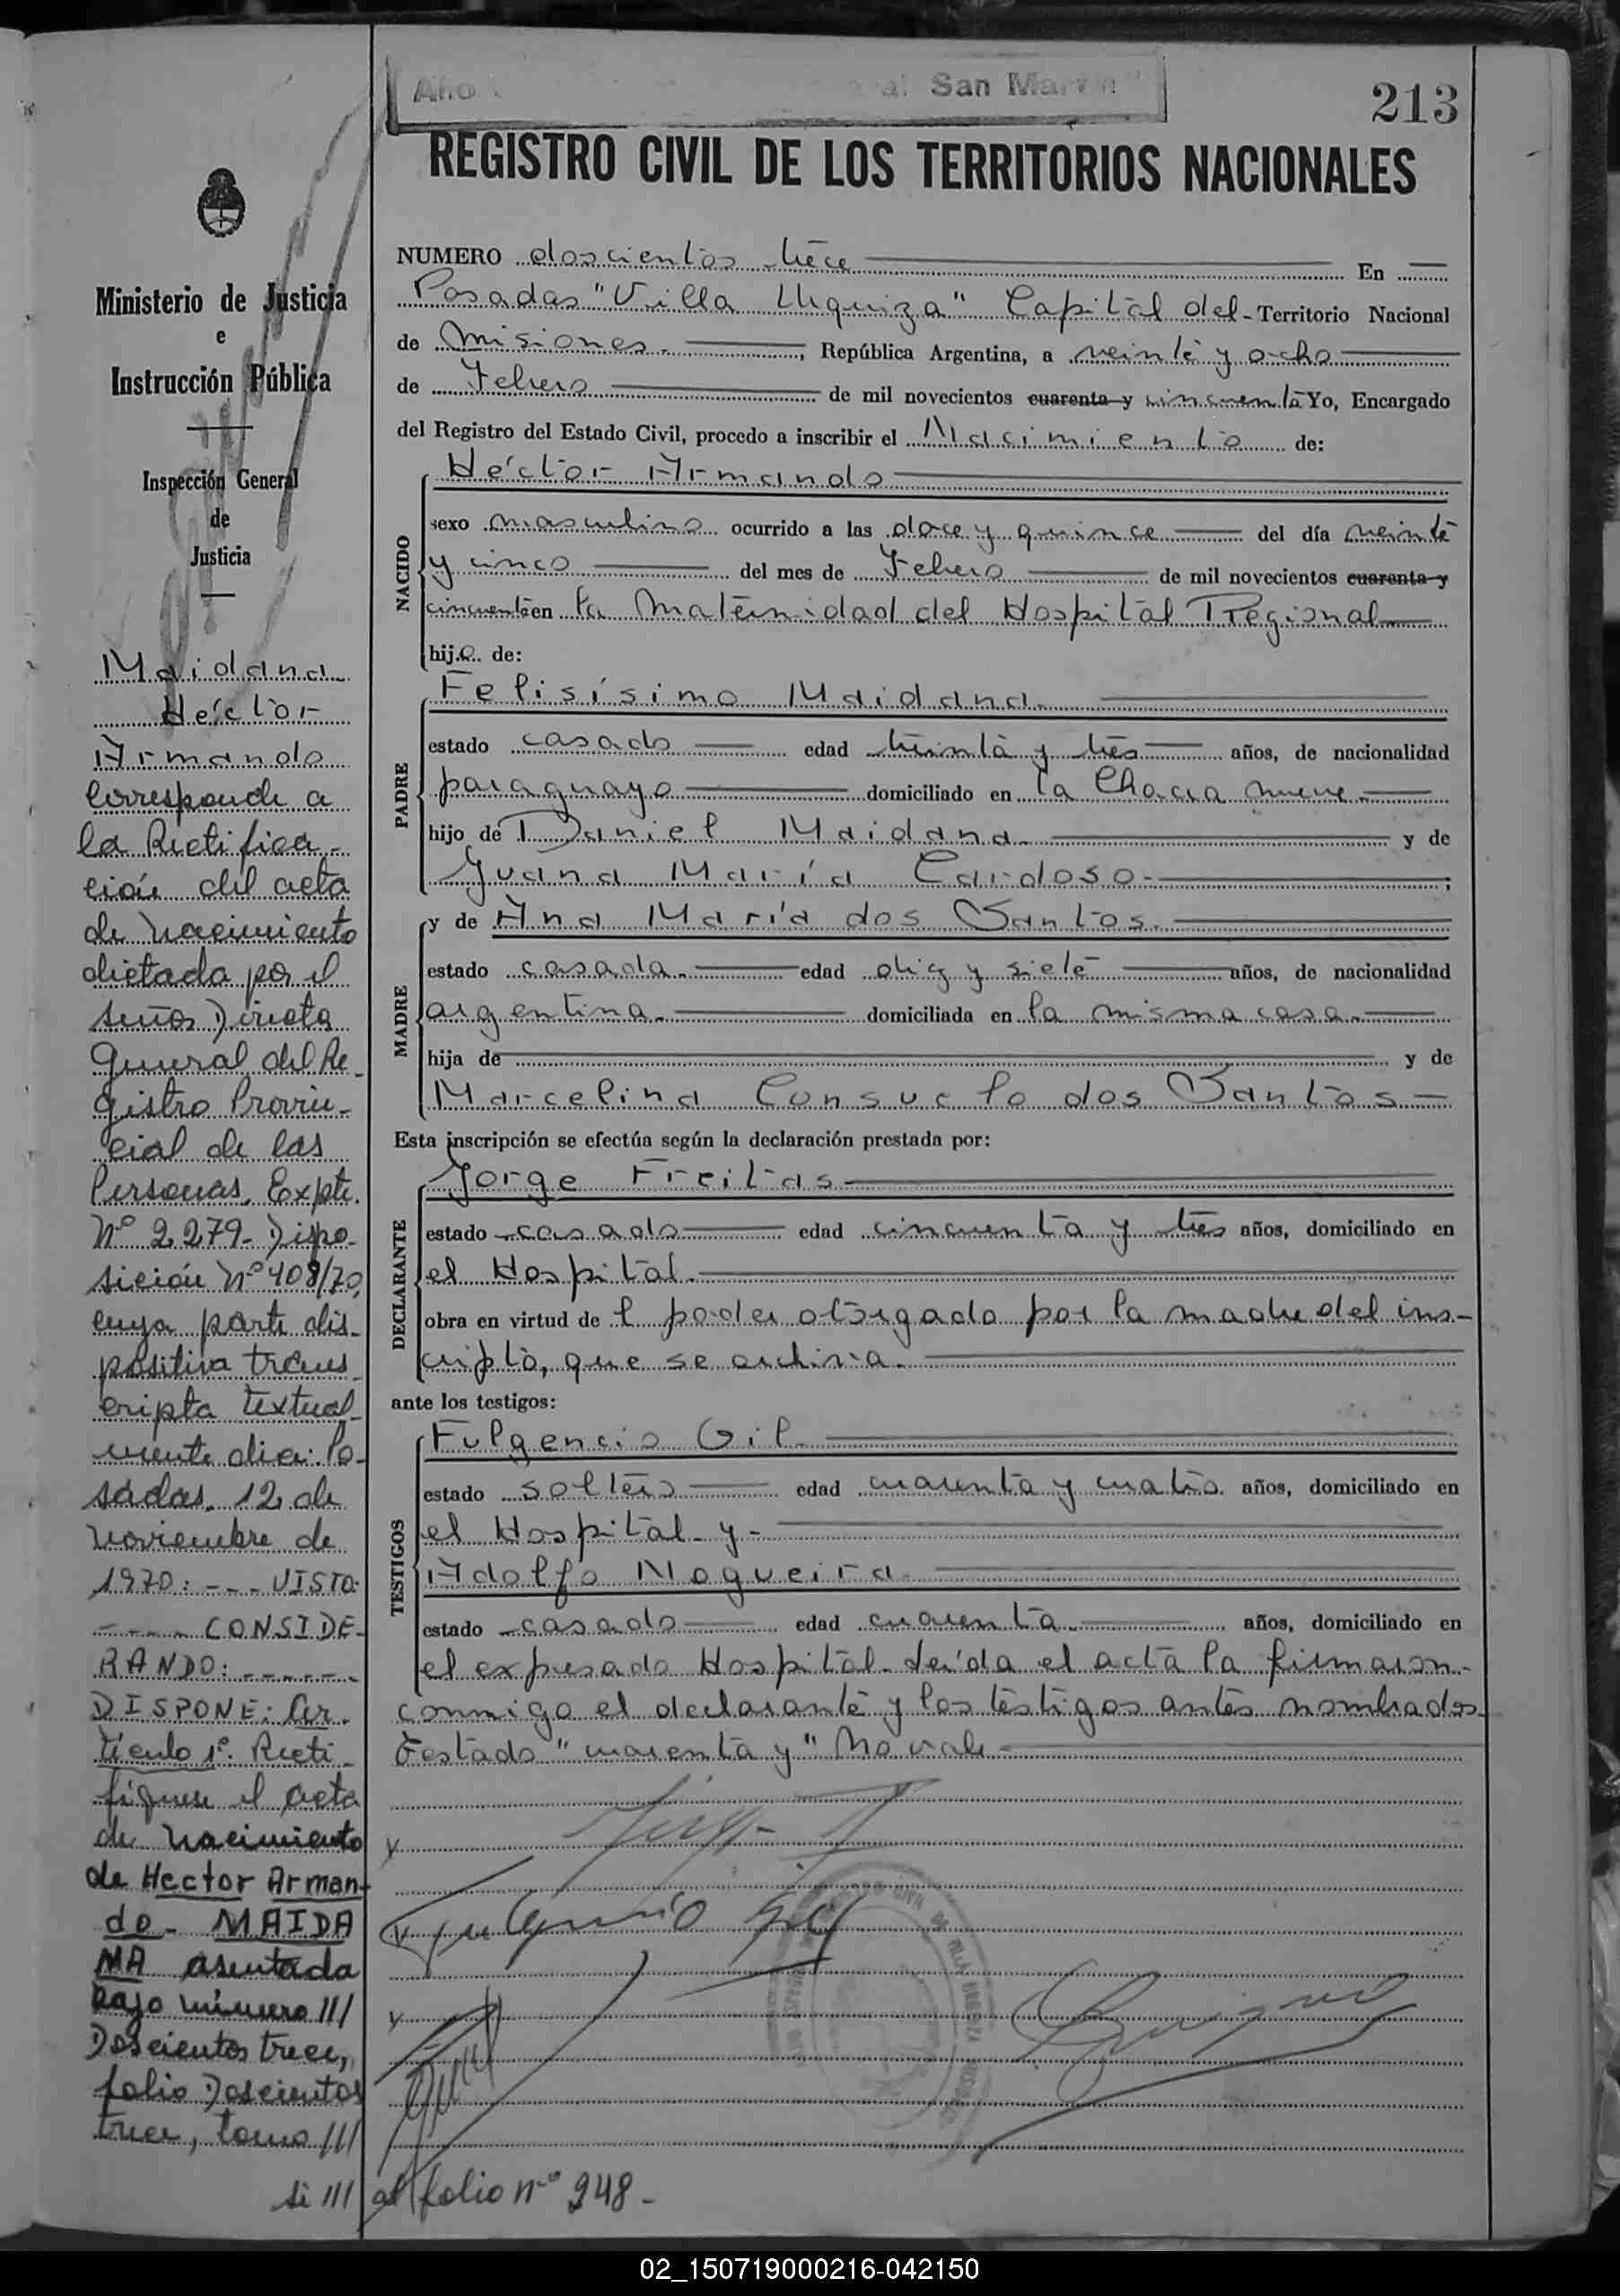 Año al San Martín"
213
REGISTRO CIVIL DE LOS TERRITORIOS NACIONALES
NUMERO doscientos trece En
Posadas "Villa Urquiza" Capital del - Territorio Nacional
de Misiones. , República Argentina, a veinte y ocho
de Febrero de mil novecientos cuarenta y cincuenta Yo, Encargado
del Registro del Estado Civil, procedo a inscribir el Nacimiento de:
Héctor Armando
NACIDO
sexo masculino ocurrido a las doce y quince del día veinte
y cinco del mes de Febrero de mil novecientos cuarenta y
cincuenta en la Maternidad del Hospital Regional
hijo de:
Felisísimo Maidana.
PADRE
estado casado edad treinta y tres años, de nacionalidad
paraguayo domiciliado en la Chacra nueve.
hijo de Daniel Maidana. y de
Juana María Cardoso.
y de Ana María dos Santos.
MADRE
estado casada. edad diez y siete años, de nacionalidad
argentina. domiciliada en la misma casa.
hija de y de
Marcelina Consuelo dos Santos
Esta inscripción se efectúa según la declaración prestada por:
Jorge Freitas
DECLARANTE
estado casado edad cincuenta y tres años, domiciliado en
el Hospital.
obra en virtud de l poder otorgado por la madre del ins-
cripto, que se archiva.
ante los testigos:
Fulgencio Gil.
TESTIGOS
estado soltero edad cuarenta y cuatro años, domiciliado en
el Hospital y
Adolfo Nogueira
estado casado edad cuarenta. años, domiciliado en
el expresado Hospital. Leída el acta la firmaron
conmigo el declarante y los testigos antes nombrados
Testado "cuarenta y" No vale
Fulgencio Gil
Ministerio de Justicia
e
Instrucción Pública
Inspección General
de
Justicia
Maidana
Héctor
Armando
Corresponde a
la Rectifica-
ción del acta
de nacimiento
dictada por el
señor Director
General del Re-
gistro Provin-
cial de las
Personas. Expte.
Nº 2279- Dispo-
sición Nº 408/70,
cuya parte dis-
positiva trans
cripta textual-
mente dice: Po-
sadas. 12 de
noviembre de
1970: --- VISTO:
---- CONSIDE-
RANDO: ------
DISPONE: Ar-
tículo 1º. Recti-
fíquese el acta
de nacimiento
de Hector Arman-
do - MAIDA
NA asentada
bajo número ///
Doscientos trece,
folio Doscientos
trece, tomo ///
si /// al folio nº 248.-
02_150719000216-042150